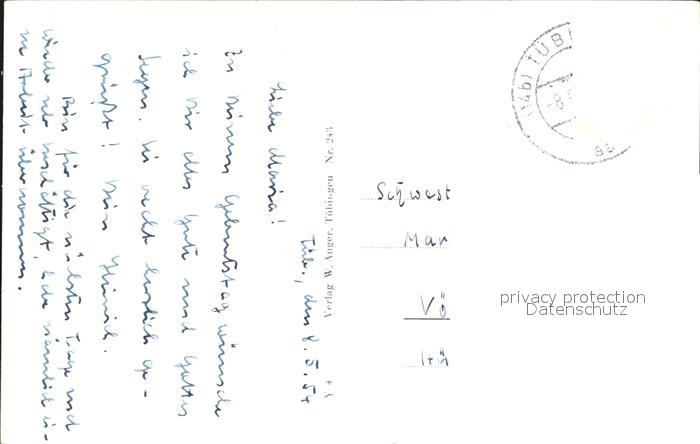 Tüb., den 8.5.54
Liebe Maria!
Zu Deinem Geburtstag wünsche
ich Dir alles Gute und Gottes
Segen. Sei recht herzlich ge-
grüßt! Dein Heinrich.
Bin für die nächsten Tage und
wieder sehr beschäftigt, habe nämlich
übernommen.
Verlag W. Anger, Tübingen Nr. 243
Schwest
Mar
Vö
(14b) TÜBI
privacy protection
Datenschutz